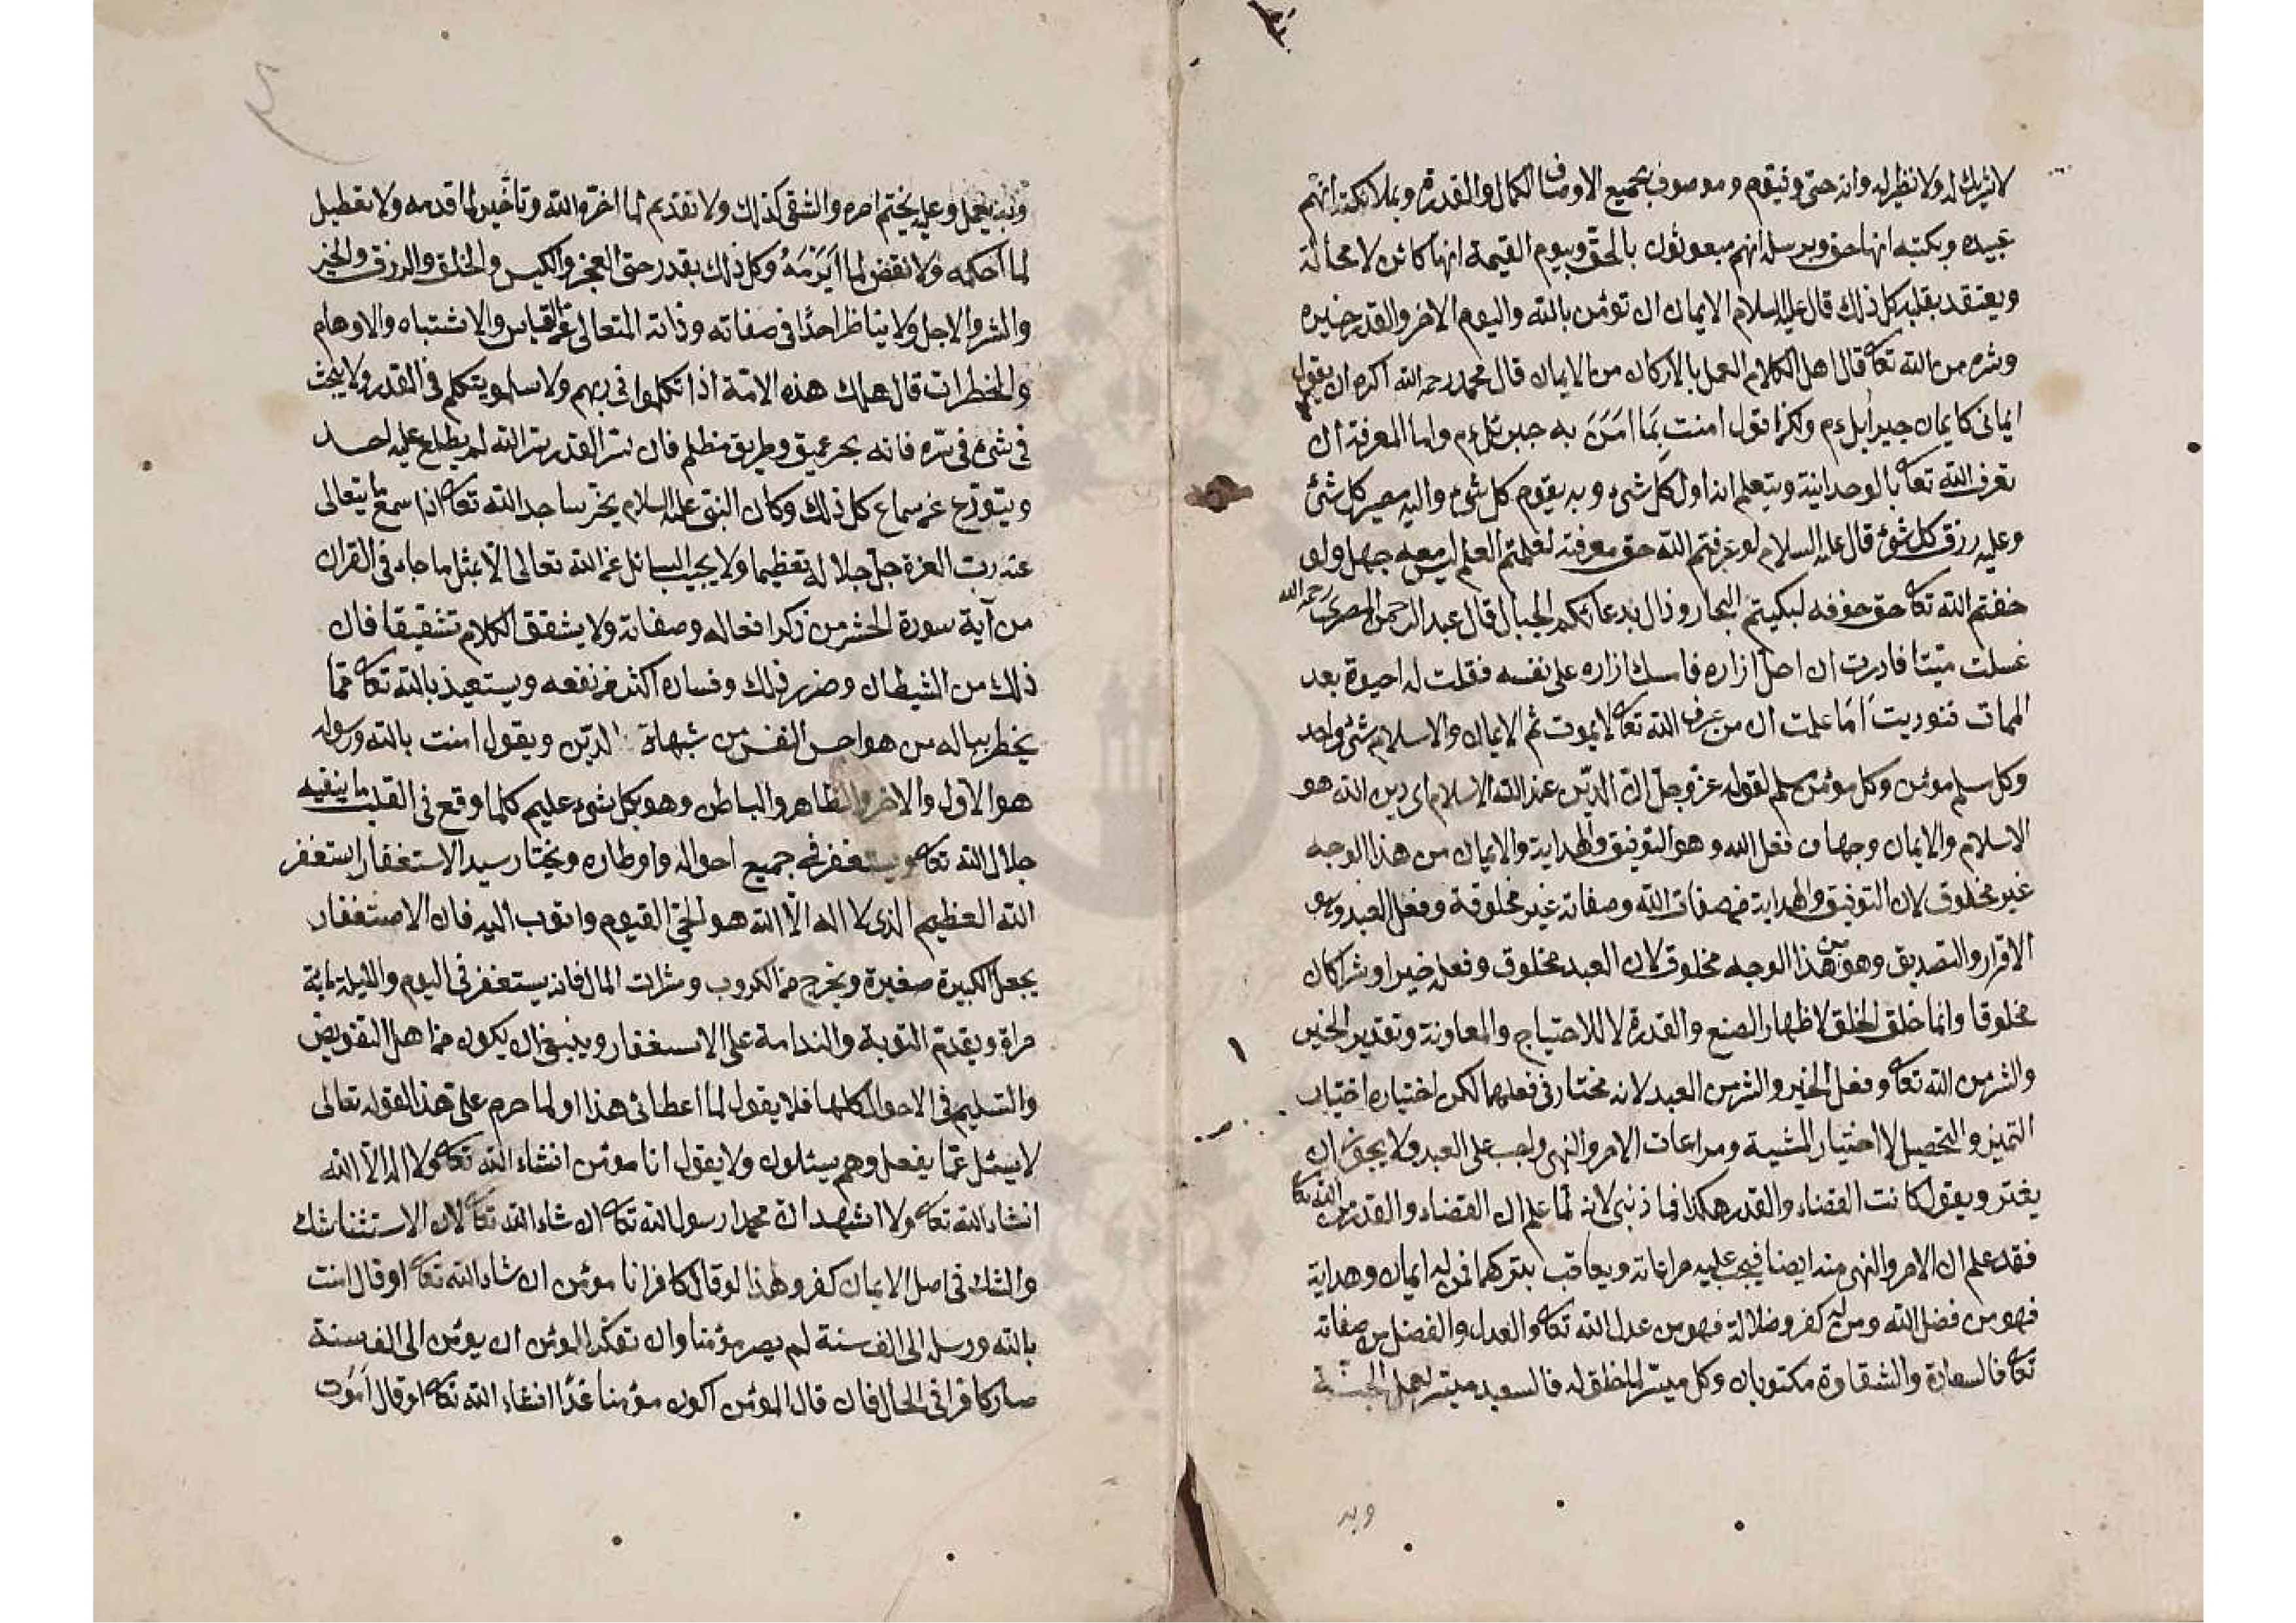 لا شريك له ولا نظير له وانه حي وقيوم وموصوف بجميع الاوصاف الكمال والقدرة وبملائكته انهم
عبيده وبكتبه انها حق وبرسله انهم مبعوثون بالحق وبيوم القيمة انها كائن لا محالة
ويعتقد بقلبه كل ذلك قال عليه السلام الايمان ان تؤمن بالله واليوم الاخر والقدر خيره
وشره من الله تعا قال اهل الكلام العمل بالاركان من الايمان قال محمد رحمه الله اكره ان يقول
ايماني كايمان جبرائيل ءم ولكن اقول امنت بما امن به جبرئل ءم واما المعرفة ان
تعرف الله تعا بالوحدانية ويتعلم انه اول كل شئ وبه يقوم كل شئ واليه مصير كل شئ
وعليه رزق كل شئ قال عليه السلام لو عرفتم الله حق معرفته لعلمتم العلم ليس معه جهل ولو
خفتم الله تعا حق خوفه لبكيتم البحار وزال بدعائكم الجبال قال عبد الرحمن المصري رحمه الله
غسلت ميتا فادرت ان احل ازاره فامسك ازاره على نفسه فقلت له احيوة بعد
الممات فنوديت اما علمت ان من عرف الله تعا لا يموت ثم الايمان والاسلام شئ واحد
وكل مسلم مؤمن وكل مؤمن مسلم لقوله عز وجل ان الدين عند الله الاسلام اي دين الله هو
الاسلام والايمان وجهان فعل الله وهو التوفيق والهداية والايمان من هذا الوجه
غير مخلوق لان التوفيق والهداية من صفات الله وصفاته غير مخلوقة وفعل العبد وهو
الاقرار والتصديق وهو من هذا الوجه مخلوق لان العبد مخلوق وفعله خيرا وشرا كان
مخلوقا وانما خلق الخلق لاظهار الصنع والقدرة لا للاحتياج والمعاونة وتقدير الخير
والشر من الله تعا وفعل الخير والشر من العبد لانه مختار في فعلهما لكن اختياره اختيار
التميز والتحصيل لا اختيار المشية ومراعات الامر والنهي واجب على العبد ولا يجوز ان
يغتر ويقول كانت القضاء والقدر هكذا فما ذنبي لانه لما علم ان القضاء والقدر من الله تعا
فقد علم ان الامر والنهي منه ايضا فيجب عليه مراعاته ويعاقب بتركهما فمن له ايمان وهداية
فهو من فضل الله ومن له كفر وضلالة فهو من عدل الله تعا والعدل والفضل من صفاته
تعا فالسعادة والشقاوة مكتوبان وكل ميسر لما خلق له فالسعيد ميسر لعمل الجنة
وبه
وبه يعمل وعليه يختم امره والشقي كذلك ولا تقديم لما اخره الله وتأخير لما قدمه ولا تعطيل
لما احكمه ولا نقض لما ابرمه وكل ذلك بقدر حتى العجز والكيس والخلق والرزق والخير
والشر والاجل ولا يناظر احدا في صفاته وذاته المتعالي عن القياس والاشتباه والاوهام
والخطرات قال هلك هذه الامة اذا تكلموا في ربهم ولا يتكلم في القدر ولا يبحث
في شئ في سره فانه بحر عميق وطريق مظلم فان سر القدر سر الله لم يطلع عليه احد
ويتورع عن سماع كل ذلك وكان النبي عليه السلام يخر ساجد الله تعا اذا سمع ما يتعالى
عنه رب العزة جل جلاله تعظيما ولا يجيب السائل عن الله تعالى الا بمثل ما جاء في القران
من آية سورة الحشر من ذكر افعاله وصفاته ولا يشقق الكلام تشقيقا فان
ذلك من الشيطان وضرر ذلك وفساده اكثر من نفعه ويستعيذ بالله تعا مما
يخطر بباله من هواجس النفس من شبهات الدين ويقول امنت بالله ورسوله
هو الاول والاخر والظاهر والباطن وهو بكل شئ عليم كلما وقع في القلب ما ينفيه
جلال الله تعا ويستغفر في جميع احواله واوطاره ويختار سيد الاستغفار استغفر
الله العظيم الذي لا اله الا الله هو الحي القيوم واتوب اليه فان الاستغفار
يجعل الكبيرة صغيرة ويخرج من الكروب ومثرات المال فانه يستغفر في اليوم والليلة مائة
مراة ويقدم التوبة والندامة على الاستغفار وينبغي ان يكون من اهل التفويض
والتسليم في الاحوال كلها فلا يقول لما اعطائى هذا او لما حرم على هذا لقوله تعالى
لا يسئل عما يفعل وهم يسئلون ولا يقول انا مؤمن انشاء الله تعا ولا اله الا الله
انشاء الله تعا ولا اشهد ان محمدا رسول الله تعا ان شاء الله تعا لان الاستثنا شك
والشك في اصل الايمان كفر ولهذا لو قال كافر انا مؤمن ان شاء الله تعا او قال امنت
بالله ورسله الى الف سنة لم يصر مؤمنا وان تفكر المؤمن ان يؤمن الى الف سنة
صار كافرا في الحال فان قال المؤمن اكون مؤمنا غدا انشاء الله تعا او قال اموت